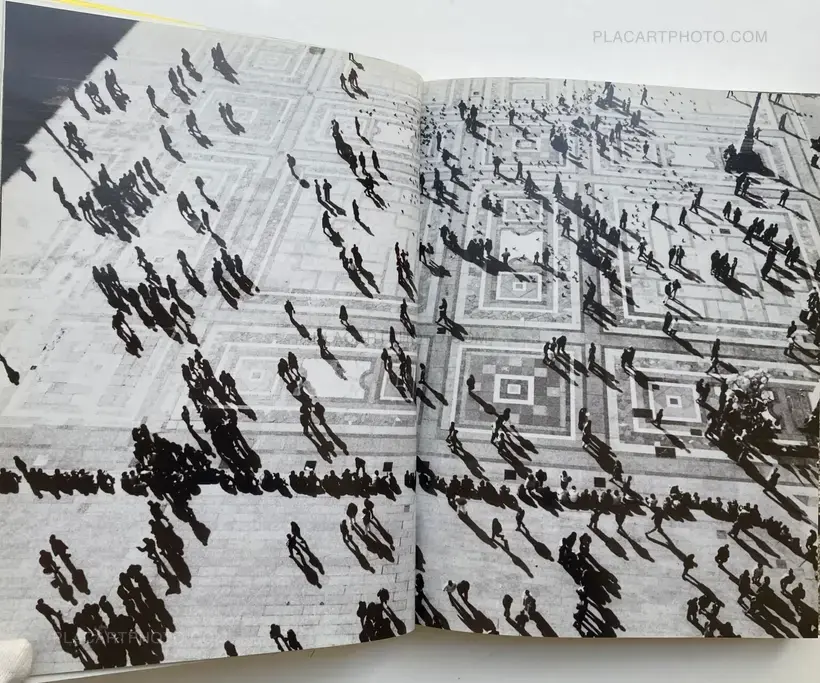 PLACARTPHOTO.COM
PLACARTPHOTO